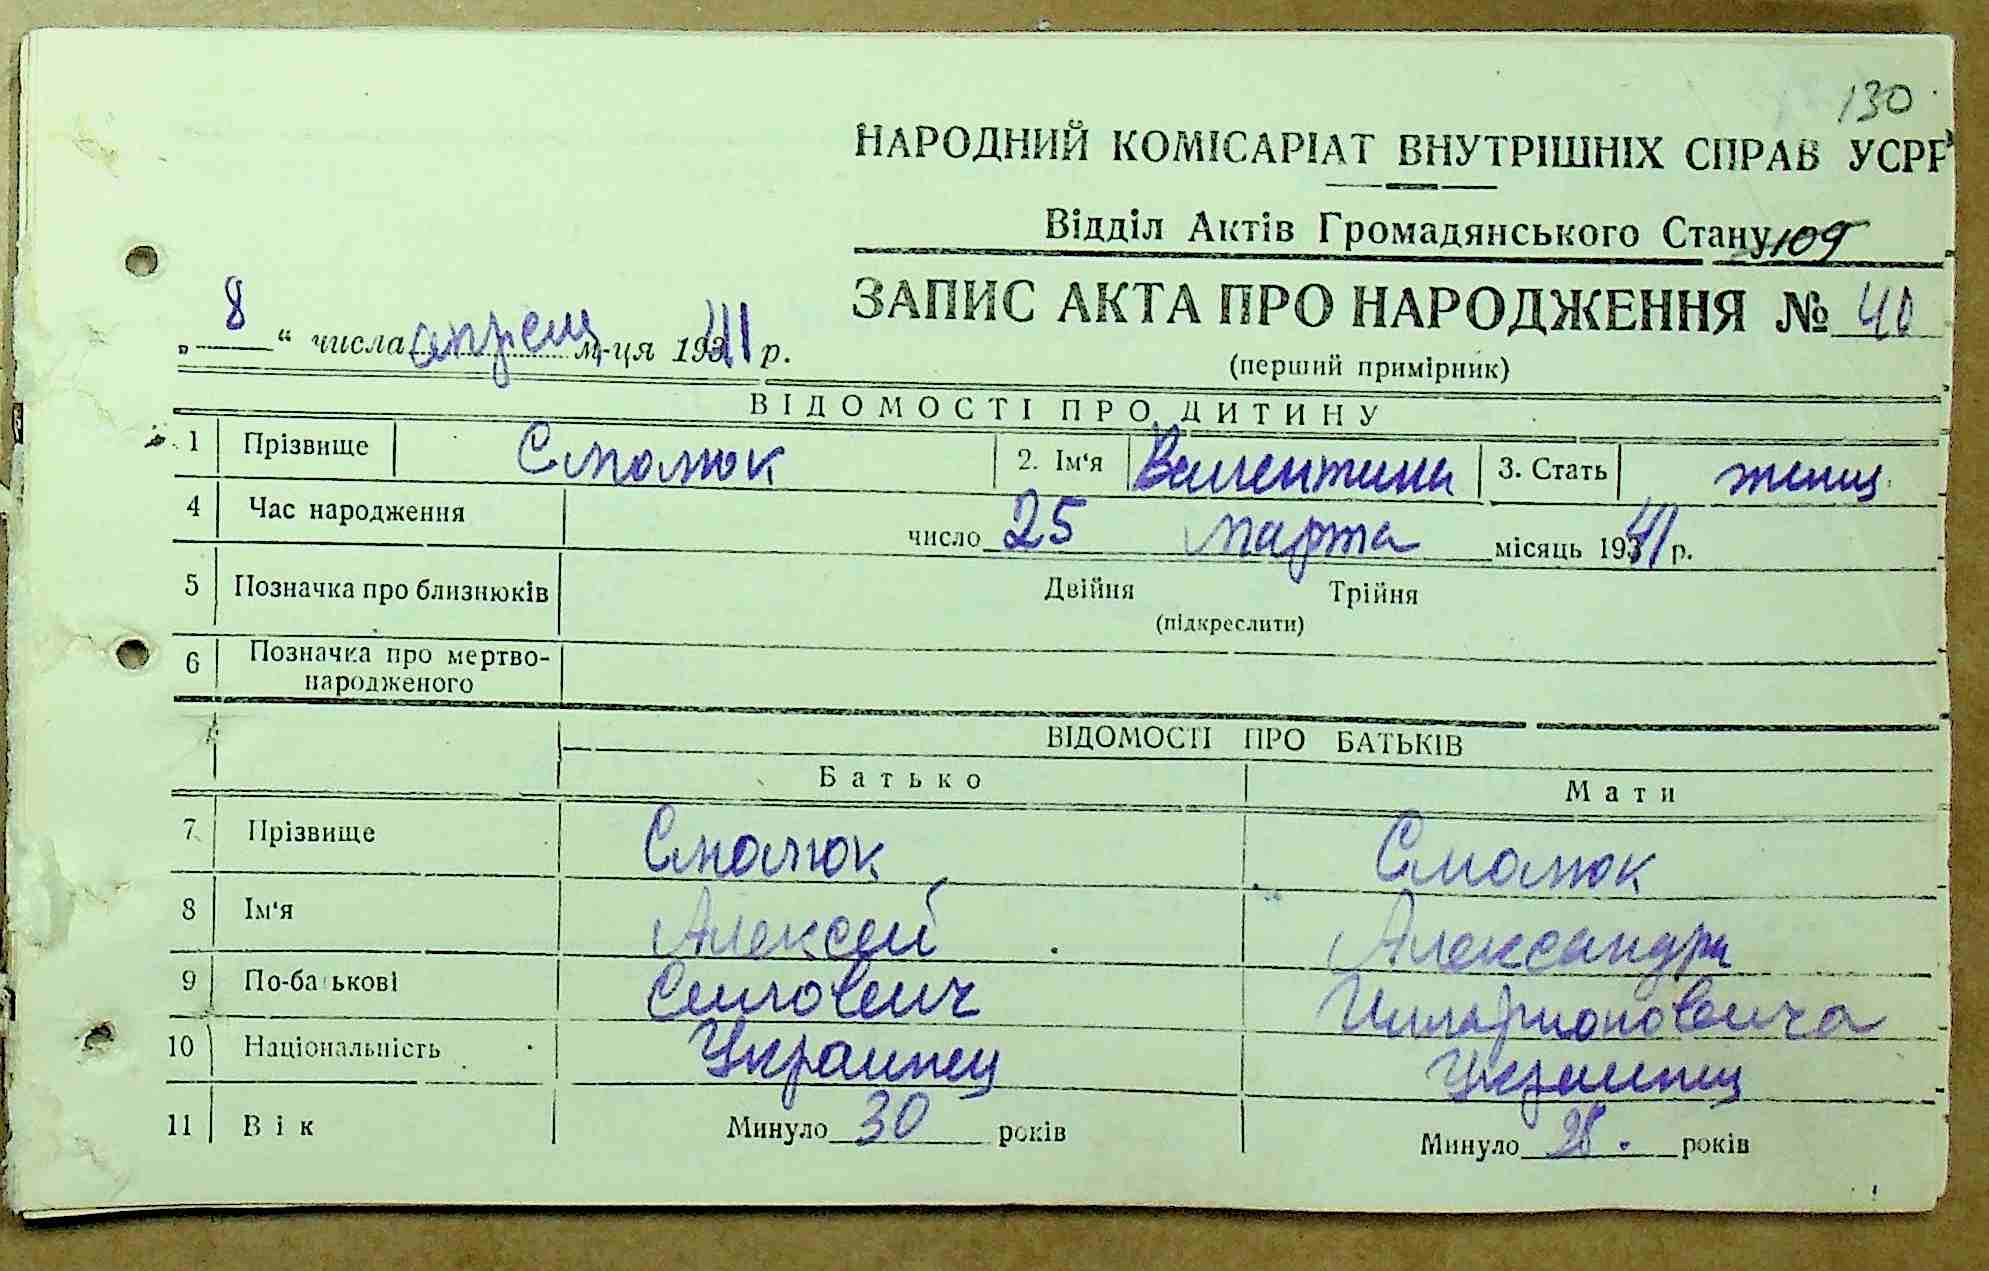 130
НАРОДНИЙ КОМІСАРІАТ ВНУТРІШНІХ СПРАВ УСРР
Відділ Актів Громадянського Стану 109
ЗАПИС АКТА ПРО НАРОДЖЕННЯ № 40
„ 8 “ числа апреля м-ця 1941 р.
(перший примірник)
ВІДОМОСТІ ПРО ДИТИНУ
1 Прізвище Смолюк 2. Ім'я Валентина 3. Стать женщ.
4 Час народження число 25 марта місяць 1941 р.
5 Позначка про близнюків Двійня Трійня
(підкреслити)
6 Позначка про мертво-
народженого
ВІДОМОСТІ ПРО БАТЬКІВ
Батько Мати
7 Прізвище Смолюк Смолюк
8 Ім'я Алексей Александра
9 По-батькові Силович
10 Національність Украинец Украинец
11 Вік Минуло 30 років Минуло 28. років